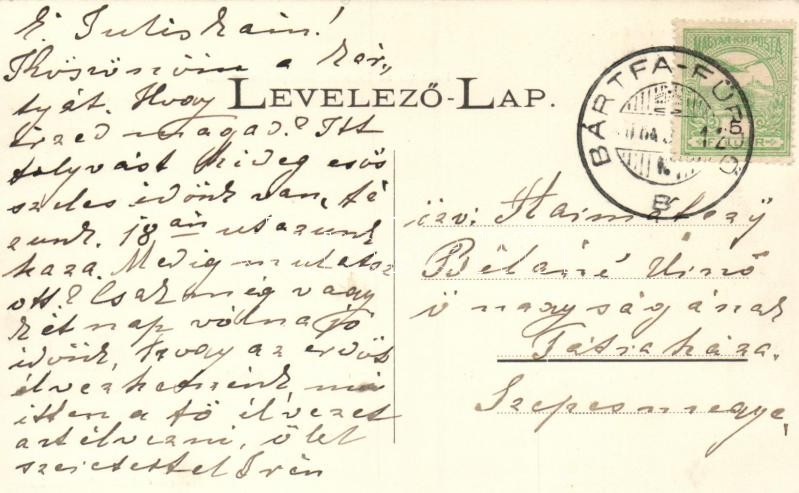 É. Juliskám!
Köszönöm a kár-
tyát. Hogy
érzed magad? Itt
folyvást hideg esős
szeles időnk van, fá
zunk. 18 án utazunk
haza. Medig mulatsz
ott? Csak még vagy
két nap volna jó
időnk, hogy az erdőt
élvezhetnénk, mi
itten a fő élvezet
Ölel
szeretettel Irén
LEVELEZŐ-LAP.
MAGYAR KIR. POSTA
FILLÉR
BÁRTFA-FÜRDŐ
B
özv:
Béláné Úrnő
ő nagyságának
Tátraháza.
Szepesmegye.